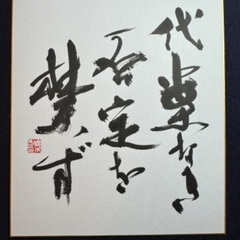 代案なき
否定を
禁ず